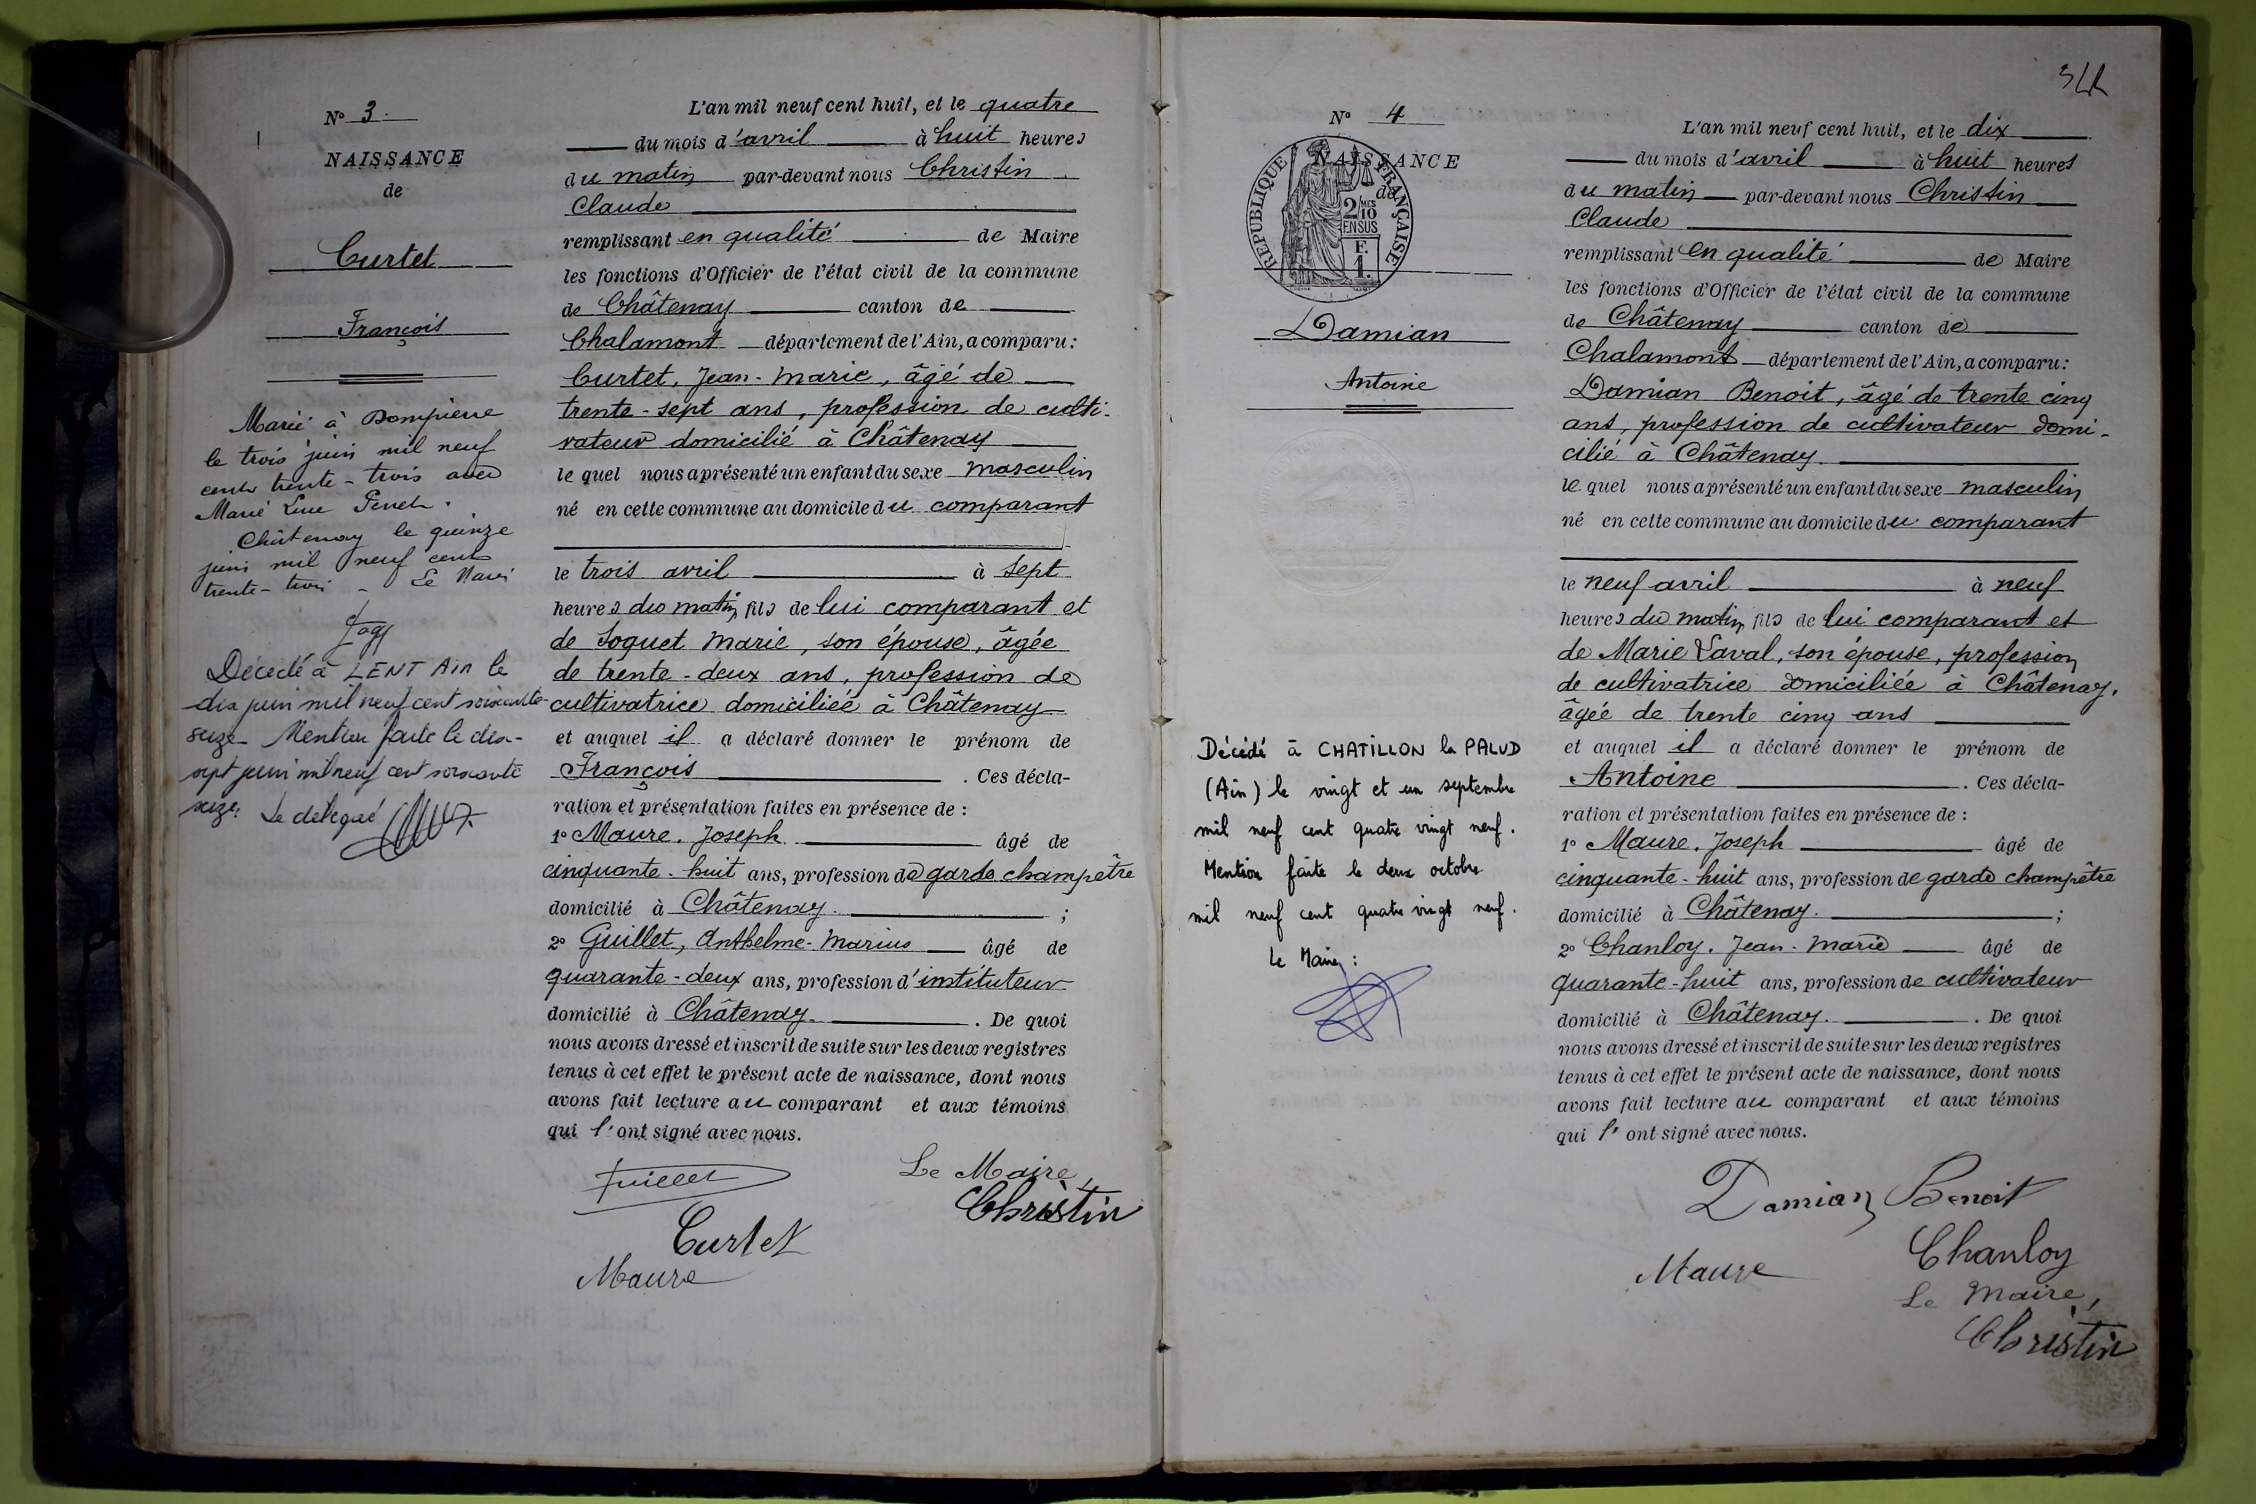 N° 3.
NAISSANCE
de
Curtet
François
Marié à Dompierre
le trois juin mil neuf
cent trente-trois avec
Marie
Châtenay le quinze
juin mil neuf cent
trente-trois - Le Maire
Décédé à LENT Ain le
dix juin mil neuf cent soixante-
seize Mention faite le dix-
sept juin mil neuf cent soixante
seize. Le délégué
L'an mil neuf cent huit, et le quatre
du mois d'avril à huit heures
du matin par-devant nous Christin
Claude
remplissant en qualité de Maire
les fonctions d'Officier de l'état civil de la commune
de Châtenay canton de
Chalamont département de l'Ain, a comparu :
Curtet, Jean-Marie, âgé de
trente-sept ans, profession de culti-
vateur domicilié à Châtenay
le quel nous a présenté un enfant du sexe masculin
né en cette commune au domicile du comparant
le trois avril à sept
heures du matin, fils de lui comparant et
de Joguet Marie, son épouse, âgée
de trente-deux ans, profession de
cultivatrice domiciliée à Châtenay
et auquel il a déclaré donner le prénom de
François. Ces décla-
ration et présentation faites en présence de :
1° Maure. Joseph âgé de
cinquante-huit ans, profession de garde champêtre
domicilié à Châtenay. ;
2° Guillet, Anthelme-Marius âgé de
quarante-deux ans, profession d'instituteur
domicilié à Châtenay. . De quoi
nous avons dressé et inscrit de suite sur les deux registres
tenus à cet effet le présent acte de naissance, dont nous
avons fait lecture au comparant et aux témoins
qui l'ont signé avec nous.
Guillet
Le Maire,
Christin
Curtet
Maure
34
N° 4
NAISSANCE
de
REPUBLIQUE FRANÇAISE
2/10
MES
EN SUS
F.
1.
Damian
Antoine
Décédé à CHATILLON la PALUD
(Ain) le vingt et un septembre
mil neuf cent quatre vingt neuf.
Mention faite le deux octobre
mil neuf cent quatre vingt neuf.
Le Maire :
L'an mil neuf cent huit, et le dix
du mois d'avril à huit heures
du matin par-devant nous Christin
Claude
remplissant en qualité de Maire
les fonctions d'Officier de l'état civil de la commune
de Châtenay canton de
Chalamont département de l'Ain, a comparu :
Damian Benoit, âgé de trente cinq
ans, profession de cultivateur domi-
cilié à Châtenay.
le quel nous a présenté un enfant du sexe masculin
né en cette commune au domicile du comparant
le neuf avril à neuf
heures du matin, fils de lui comparant et
de Marie Laval, son épouse, profession
de cultivatrice domiciliée à Châtenay,
âgée de trente cinq ans
et auquel il a déclaré donner le prénom de
Antoine. Ces décla-
ration et présentation faites en présence de :
1° Maure. Joseph âgé de
cinquante-huit ans, profession de garde champêtre
domicilié à Châtenay. ;
2° Chanloy. Jean-Marie âgé de
quarante-huit ans, profession de cultivateur
domicilié à Châtenay. . De quoi
nous avons dressé et inscrit de suite sur les deux registres
tenus à cet effet le présent acte de naissance, dont nous
avons fait lecture au comparant et aux témoins
qui l'ont signé avec nous.
Damian Benoit
Chanloy
Maure
Le Maire,
Christin